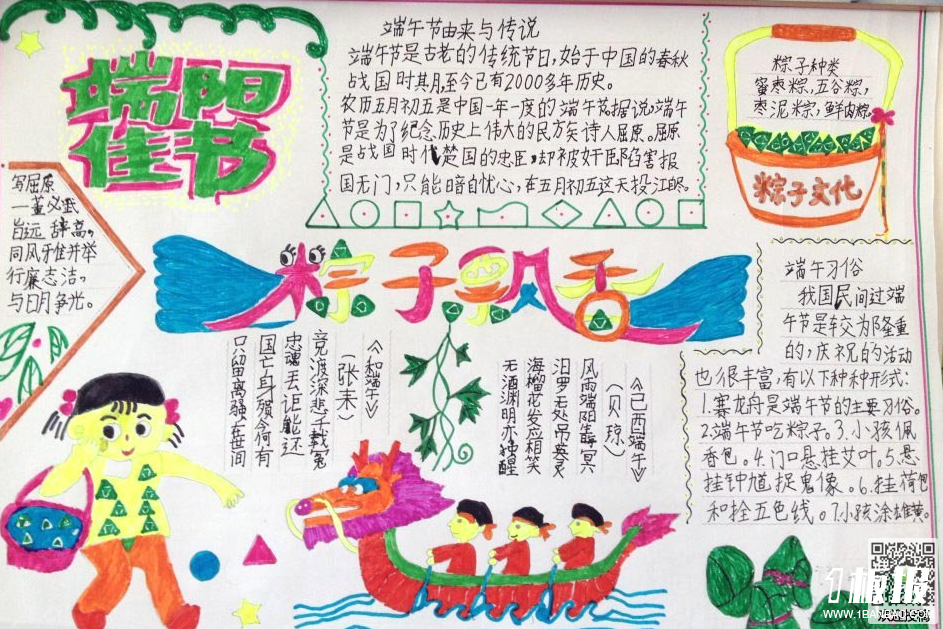 端阳
佳节
端午节由来与传说
端午节是古老的传统节日,始于中国的春秋
战国时其月,至今已有2000多年历史。
农历五月初五是中国一年一度的端午节,据说,端午
节是为了纪念历史上伟大的民族诗人屈原。屈原
是战国时代楚国的忠臣,却被奸臣陷害报
国无门,只能暗自忧心,在五月初五这天投江
粽子种类
蜜枣粽,五谷粽,
枣泥粽,鲜肉粽
粽子文化
写屈原
旨远 辞高,
同风雅并举
行廉志洁,
与日月争光。
粽子飘香
端午习俗
我国民间过端
午节是较为隆重
的,庆祝的活动
也很丰富,有以下种种形式:
1.赛龙舟是端午节的主要习俗。
2.端午节吃粽子。3.小孩佩
香包。4.门口悬挂艾叶。5.悬
挂钟馗捉鬼像。6.挂荷包
和拴五色线。7.小孩涂雄黄。
《己酉端午》
(贝琼)
风雨端阳生晦冥
汨罗无处吊英灵
海榴花发应相笑
无酒渊明亦独醒
《和端午》
(张耒)
竞渡深悲千载冤
忠魂一去讵能还
国亡身殒今何有
只留离骚在世间
1板报
WWW.1BANBAO.COM
欢迎投稿